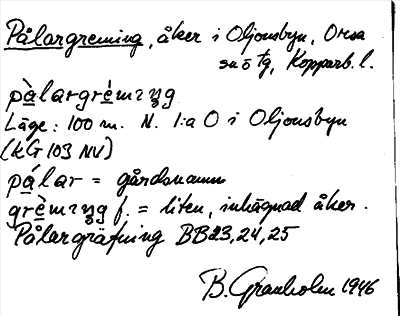 Pålargreming, åker i Oljonsbyn, Orsa
sn ö tg, Kopparb. l.
pàlargrèmıŋg
Läge: 100 m. N. 1:a O i Oljonsbyn
(KG 103 NV)
pálar = gårdsnamn
grèmıŋg f. = liten, inhägnad åker.
Pålargräfning BB23,24,25
B. Granholm 1946